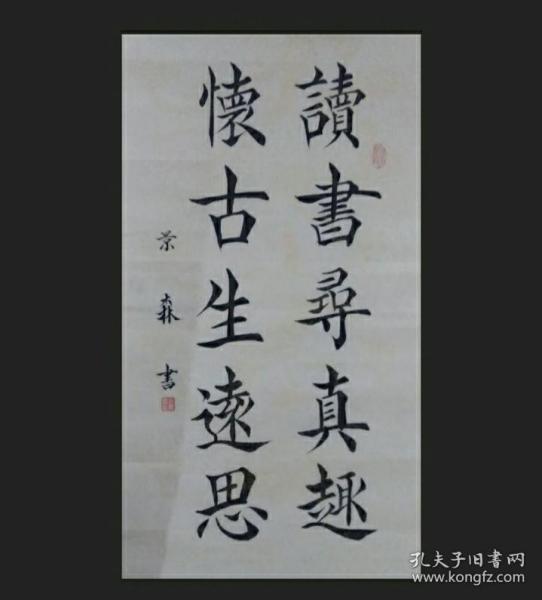 讀書尋真趣
懷古生遠思
景森書
孔夫子旧书网
www.kongfz.com